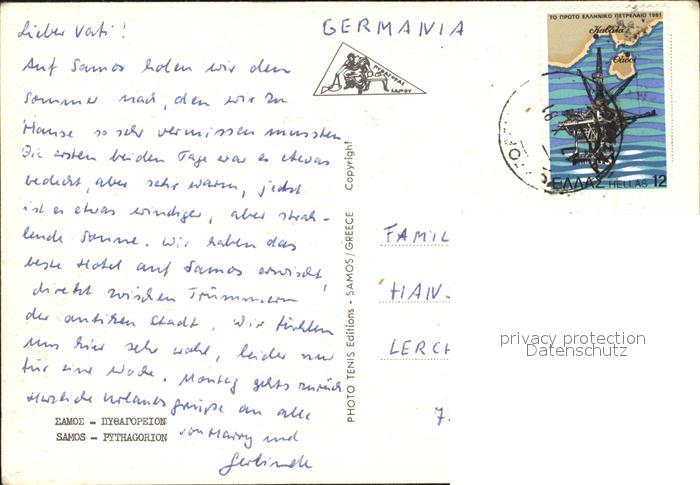 Lieber Vati!
Auf Samos holen wir den
Sommer nach, den wir zu
Hause so sehr vermissen mussten.
Die ersten beiden Tage war es etwas
bedeckt, aber sehr warm, jetzt
ist es etwas windiger, aber strah-
lende Sonne. Wir haben das
beste Hotel auf Samos erwischt,
direkt zwischen Trümmern
der antiken Stadt. Wir fühlen
uns hier sehr wohl, leider nur
für eine Woche. Montag gehts zurück
Herzliche Urlaubsgrüße an alle
von Harry und
Gerlinde
ΣΑΜΟΣ - ΠΥΘΑΓΟΡΕΙΟΝ
SAMOS - PYTHAGORION
PHOTO TENIS Editions - SAMOS/GREECE Copyright
GERMANIA
ΠΥΘΑΓΟΡΑΣ
ΣΑΜΟΥ
ΤΟ ΠΡΩΤΟ ΕΛΛΗΝΙΚΟ ΠΕΤΡΕΛΑΙΟ 1981
Καβάλα
Θάσος
ΕΛΛΑΣ HELLAS 12
FAMIL
HAN
LERCH
7.
privacy protection
Datenschutz